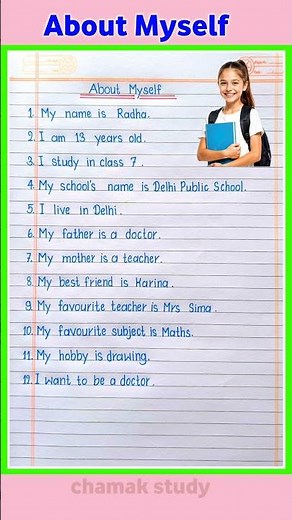 About Myself
About Myself
1. My name is Radha.
2. I am 13 years old.
3. I study in class 7.
4. My school's name is Delhi Public School.
5. I live in Delhi.
6. My father is a doctor.
7. My mother is a teacher.
8. My best friend is Karina.
9. My favourite teacher is Mrs Sima.
10. My favourite subject is Maths.
11. My hobby is drawing.
12. I want to be a doctor.
chamak study